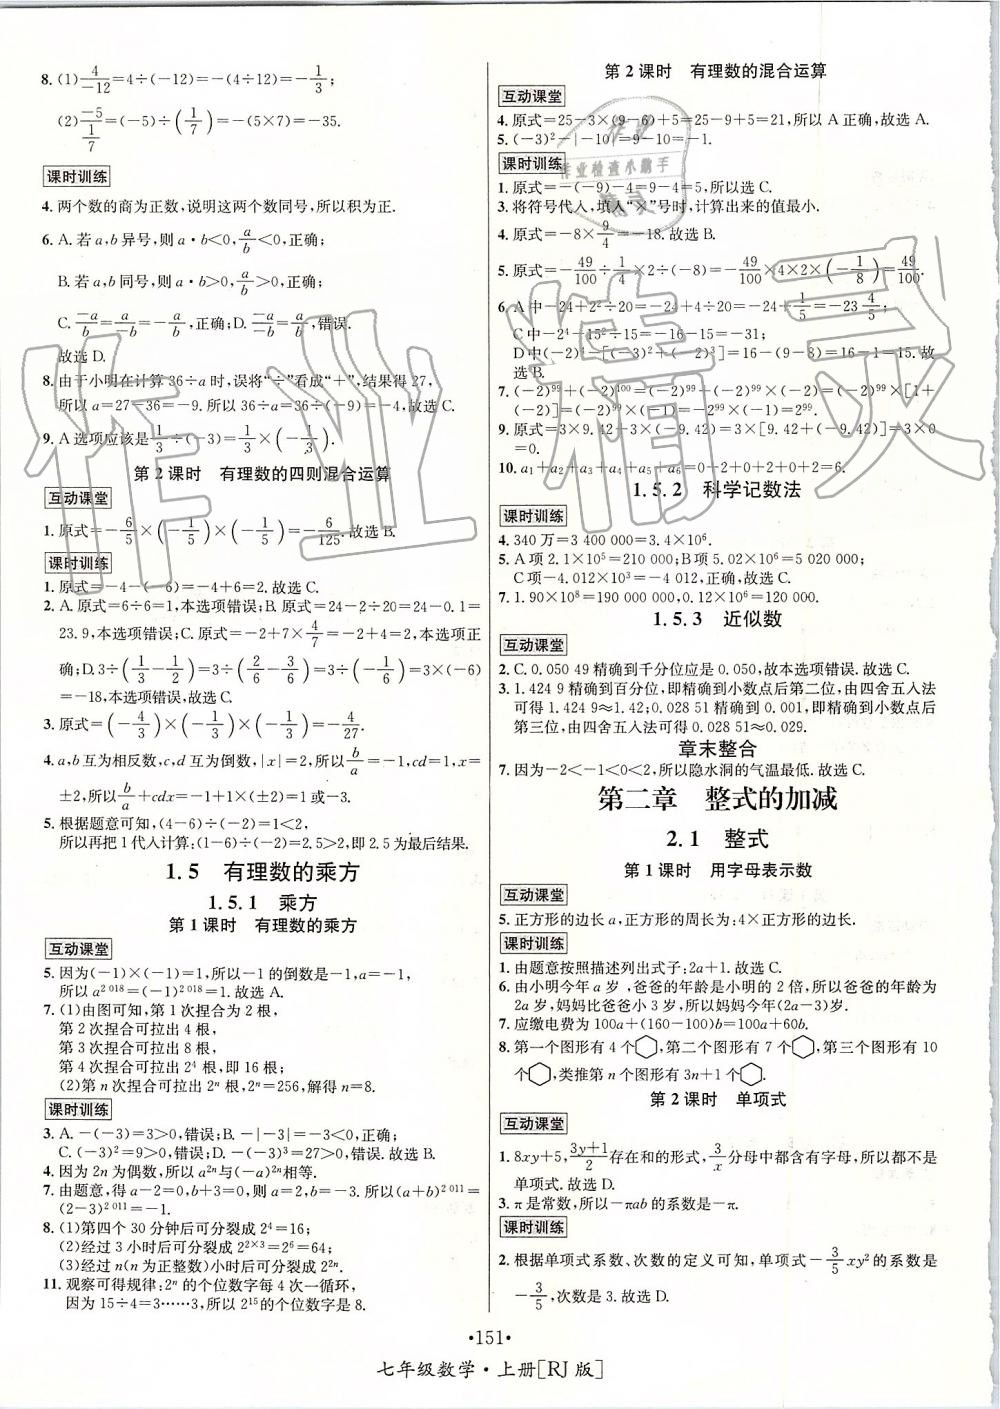 8. (1) 4/−12=4÷(−12)=−(4÷12)=−1/3;
(2) −5/(1/7)=(−5)÷(1/7)=−(5×7)=−35.
课时训练
4. 两个数的商为正数,说明这两个数同号,所以积为正.
6. A. 若 a,b 异号,则 a·b<0,a/b<0,正确;
B. 若 a,b 同号,则 a·b>0,a/b>0,正确;
C. −a/b=a/−b=−a/b,正确;D. −a/−b=a/b,错误.
故选 D.
8. 由于小明在计算 36÷a 时,误将“÷”看成“+”,结果得 27,
所以 a=27−36=−9. 所以 36÷a=36÷(−9)=−4,故选 C.
9. A 选项应该是 1/3÷(−3)=1/3×(−1/3).
第 2 课时 有理数的四则混合运算
互动课堂
1. 原式=−6/5×(−1/5)×(−1/5)=−6/125. 故选 B.
课时训练
1. 原式=−4−(−6)=−4+6=2. 故选 C.
2. A. 原式=6÷6=1,本选项错误;B. 原式=24−2÷20=24−0.1=
23.9,本选项错误;C. 原式=−2+7×4/7=−2+4=2,本选项正
确;D. 3÷(1/3−1/2)=3÷(2/6−3/6)=3÷(−1/6)=3×(−6)
=−18,本选项错误,故选 C.
3. 原式=(−4/3)×(−1/3)×(−1/3)=−4/27.
4. a,b 互为相反数,c,d 互为倒数,|x|=2,所以 b/a=−1,cd=1,x=
±2,所以 b/a+cdx=−1+1×(±2)=1或−3.
5. 根据题意可知,(4−6)÷(−2)=1<2,
所以再把 1 代入计算:(1−6)÷(−2)=2.5>2,即 2.5 为最后结果.
1.5 有理数的乘方
1.5.1 乘方
第 1 课时 有理数的乘方
互动课堂
5. 因为(−1)×(−1)=1,所以−1 的倒数是−1,a=−1,
所以 a^2 018=(−1)^2 018=1. 故选 A.
7. (1)由图可知,第 1 次捏合为 2 根,
第 2 次捏合可拉出 4 根,
第 3 次捏合可拉出 8 根,
第 4 次捏合可拉出 2⁴ 根,即 16 根;
(2)第 n 次捏合可拉出 2ⁿ 根,2ⁿ=256,解得 n=8.
课时训练
3. A. −(−3)=3>0,错误;B. −|−3|=−3<0,正确;
C. (−3)²=9>0,错误;D. −(−3)³=27>0,错误. 故选 B.
4. 因为 2n 为偶数,所以 a²ⁿ与(−a)²ⁿ相等.
7. 由题意,得 a−2=0,b+3=0,则 a=2,b=−3. 所以(a+b)^2 011=
(2−3)^2 011=−1.
8. (1)第四个 30 分钟后可分裂成 2⁴=16;
(2)经过 3 小时后可分裂成 2^2×3=2⁶=64;
(3)经过 n(n 为正整数)小时后可分裂成 2²ⁿ.
11. 观察可得规律:2ⁿ 的个位数字每 4 次一循环,
因为 15÷4=3……3,所以 2¹⁵的个位数字是 8.
第 2 课时 有理数的混合运算
互动课堂
4. 原式=25−3×(9−6)+5=25−9+5=21,所以 A 正确,故选 A.
5. (−3)²−|−10|=9−10=−1.
课时训练
1. 原式=−(−9)−4=9−4=5,所以选 C.
3. 将符号代入,填入“×”号时,计算出来的值最小.
4. 原式=−8×9/4=−18. 故选 B.
5. 原式=−49/100÷1/4×2÷(−8)=−49/100×4×2×(−1/8)=49/100.
6. A 中−24+2²÷20=−24+4÷20=−24+1/5=−23 4/5;
C 中−2⁴−15²÷15=−16−15=−31;
D 中(−2)⁴−[(−3)²+(−2)³]=16−(9−8)=16−1=15. 故
选 B.
7. (−2)⁹⁹+(−2)¹⁰⁰=(−2)⁹⁹+(−2)⁹⁹×(−2)=(−2)⁹⁹×[1+
(−2)]=(−2)⁹⁹×(−1)=−2⁹⁹×(−1)=2⁹⁹.
9. 原式=3×9.42+3×(−9.42)=3×[9.42+(−9.42)]=3×0
=0.
10. a₁+a₂+a₃+a₄+a₅+a₆=0+2+0+2+0+2=6.
1.5.2 科学记数法
课时训练
4. 340 万=3 400 000=3.4×10⁶.
5. A 项 2.1×10⁵=210 000;B 项 5.02×10⁶=5 020 000;
C 项−4.012×10³=−4 012,正确,故选 C.
7. 1.90×10⁸=190 000 000,0.12×10⁶=120 000.
1.5.3 近似数
互动课堂
2. C. 0.050 49 精确到千分位应是 0.050,故本选项错误. 故选 C.
3. 1.424 9 精确到百分位,即精确到小数点后第二位,由四舍五入法
可得 1.424 9≈1.42;0.028 51 精确到 0.001,即精确到小数点后
第三位,由四舍五入法可得 0.028 51≈0.029.
章末整合
7. 因为−2<−1<0<2,所以隐水洞的气温最低. 故选 C.
第二章 整式的加减
2.1 整式
第 1 课时 用字母表示数
互动课堂
5. 正方形的边长 a,正方形的周长为:4×正方形的边长.
课时训练
1. 由题意按照描述列出式子:2a+1. 故选 D.
6. 由小明今年 a 岁,爸爸的年龄是小明的 2 倍,所以爸爸的年龄为
2a 岁,妈妈比爸爸小 3 岁,所以妈妈今年(2a−3)岁.
7. 应缴电费为 100a+(160−100)b=100a+60b.
8. 第一个图形有 4 个⬡,第二个图形有 7 个⬡,第三个图形有 10
个⬡,类推第 n 个图形有 3n+1 个⬡.
第 2 课时 单项式
互动课堂
1. 8xy+5,3y+1/2存在和的形式,3/x分母中都含有字母,所以都不是
单项式. 故选 D.
3. π 是常数,所以−πab 的系数是−π.
课时训练
2. 根据单项式系数、次数的定义可知,单项式−3/5xy²的系数是
−3/5,次数是 3. 故选 D.
·151·
七年级数学·上册[RJ 版]
作业精灵
作业检查小助手